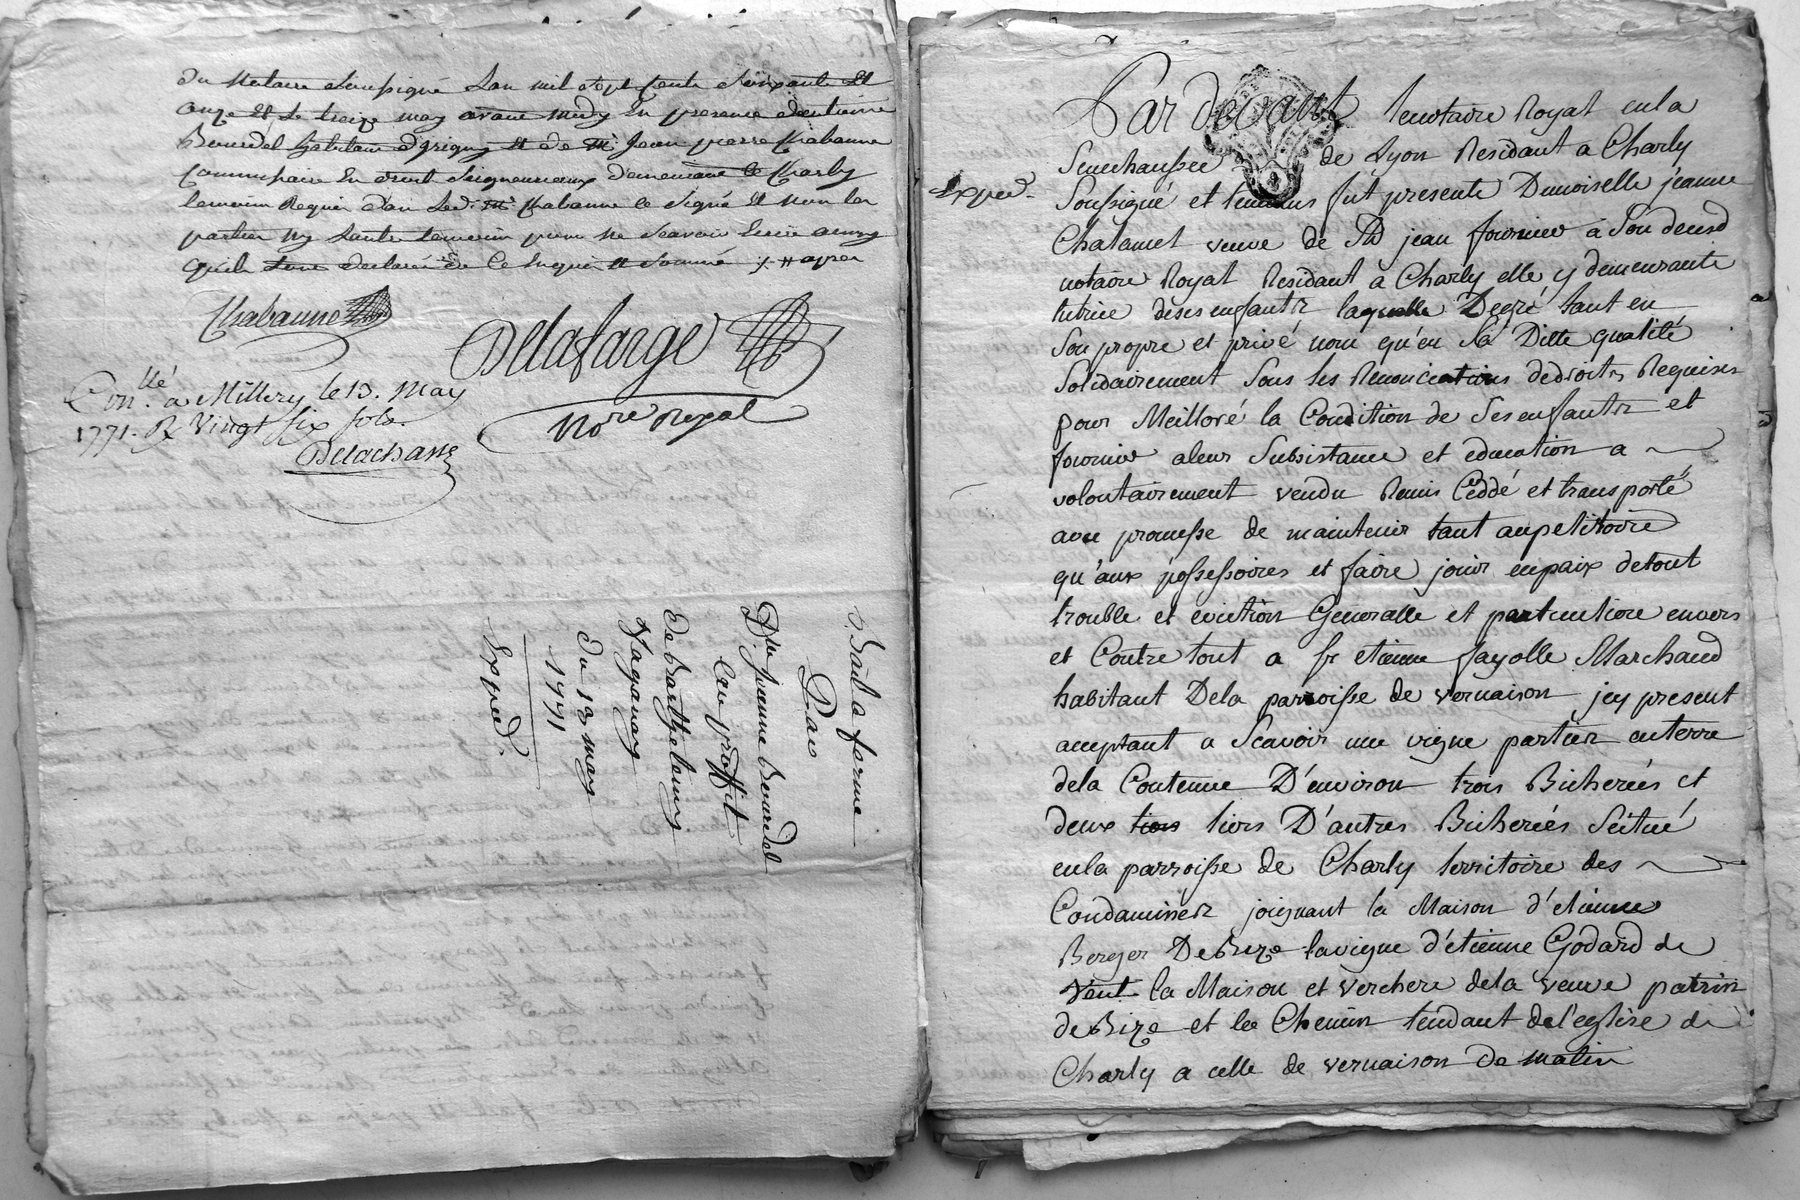 du Notaire soussigné L'an mil sept Cents Soixante Et
onze Et Le treize may avant midy En presence
Bourdel habitant d'Irigny Et de Mr. Jean pierre Chabanne
Commissaire En droit Seigneuriaux demeurant a Charly
temoins Requis d'on Led. Mr. Chabanne a Signé Et non les
parties ny L'autre temoin pour ne Scavoir Ecrire ainsy
qu'ils Lont declarés de Ce Enquis Et Sommé
Chabanne
Delafarge
Nore Royal
Conllé. a Millery le 13. May
1771. R Vingt six sols.
Delachasse
Bail a ferme
Par
Dlle Jeanne Bourdel
Au proffit
de Barthelemy
Vaganay
du 13 may
1771
Exped.
Exped.
Par devant le notaire Royal en la
Senechaussee de Lyon Residant a Charly
Soussigné et temoins fut presente Demoiselle jeanne
Chatamet veuve de Me jean fournier à Son deced
notaire Royal Residant à Charly elle y demeurante
tutrice deses enfantz laquelle Degré tant en
Son propre et privé nom qu'en Sa Ditte qualité
Solidairement Sous les Renonciations dedroits Requises
pour Meilloré la Condition de Ses enfantz et
fournir aleur Subsistance et education a
volontairement vendu Remis Ceddé et transporté
avec promesse de maintenir tant aupetitoire
qu'aux possessoires et faire jouir enpaix detout
trouble et eviction Generalle et particuliere envers
et Contre tout a sr etienne fayolle Marchand
habitant Dela parroisse de vernaison jcy present
acceptant a Scavoir une vigne partie en terre
dela Contenue D'environ trois Bicherées et
deux tiers tiers D'autres Bicherées Scitué
enla parroisse de Charly territoire des
Condamines joignant la Maison d'etienne
Berger De Bize lavigne d'etienne Godard de
Vent la Maison et verchere dela veuve patrin
de Bize et le Chemin tendant del'eglise de
Charly a celle de vernaison de matin